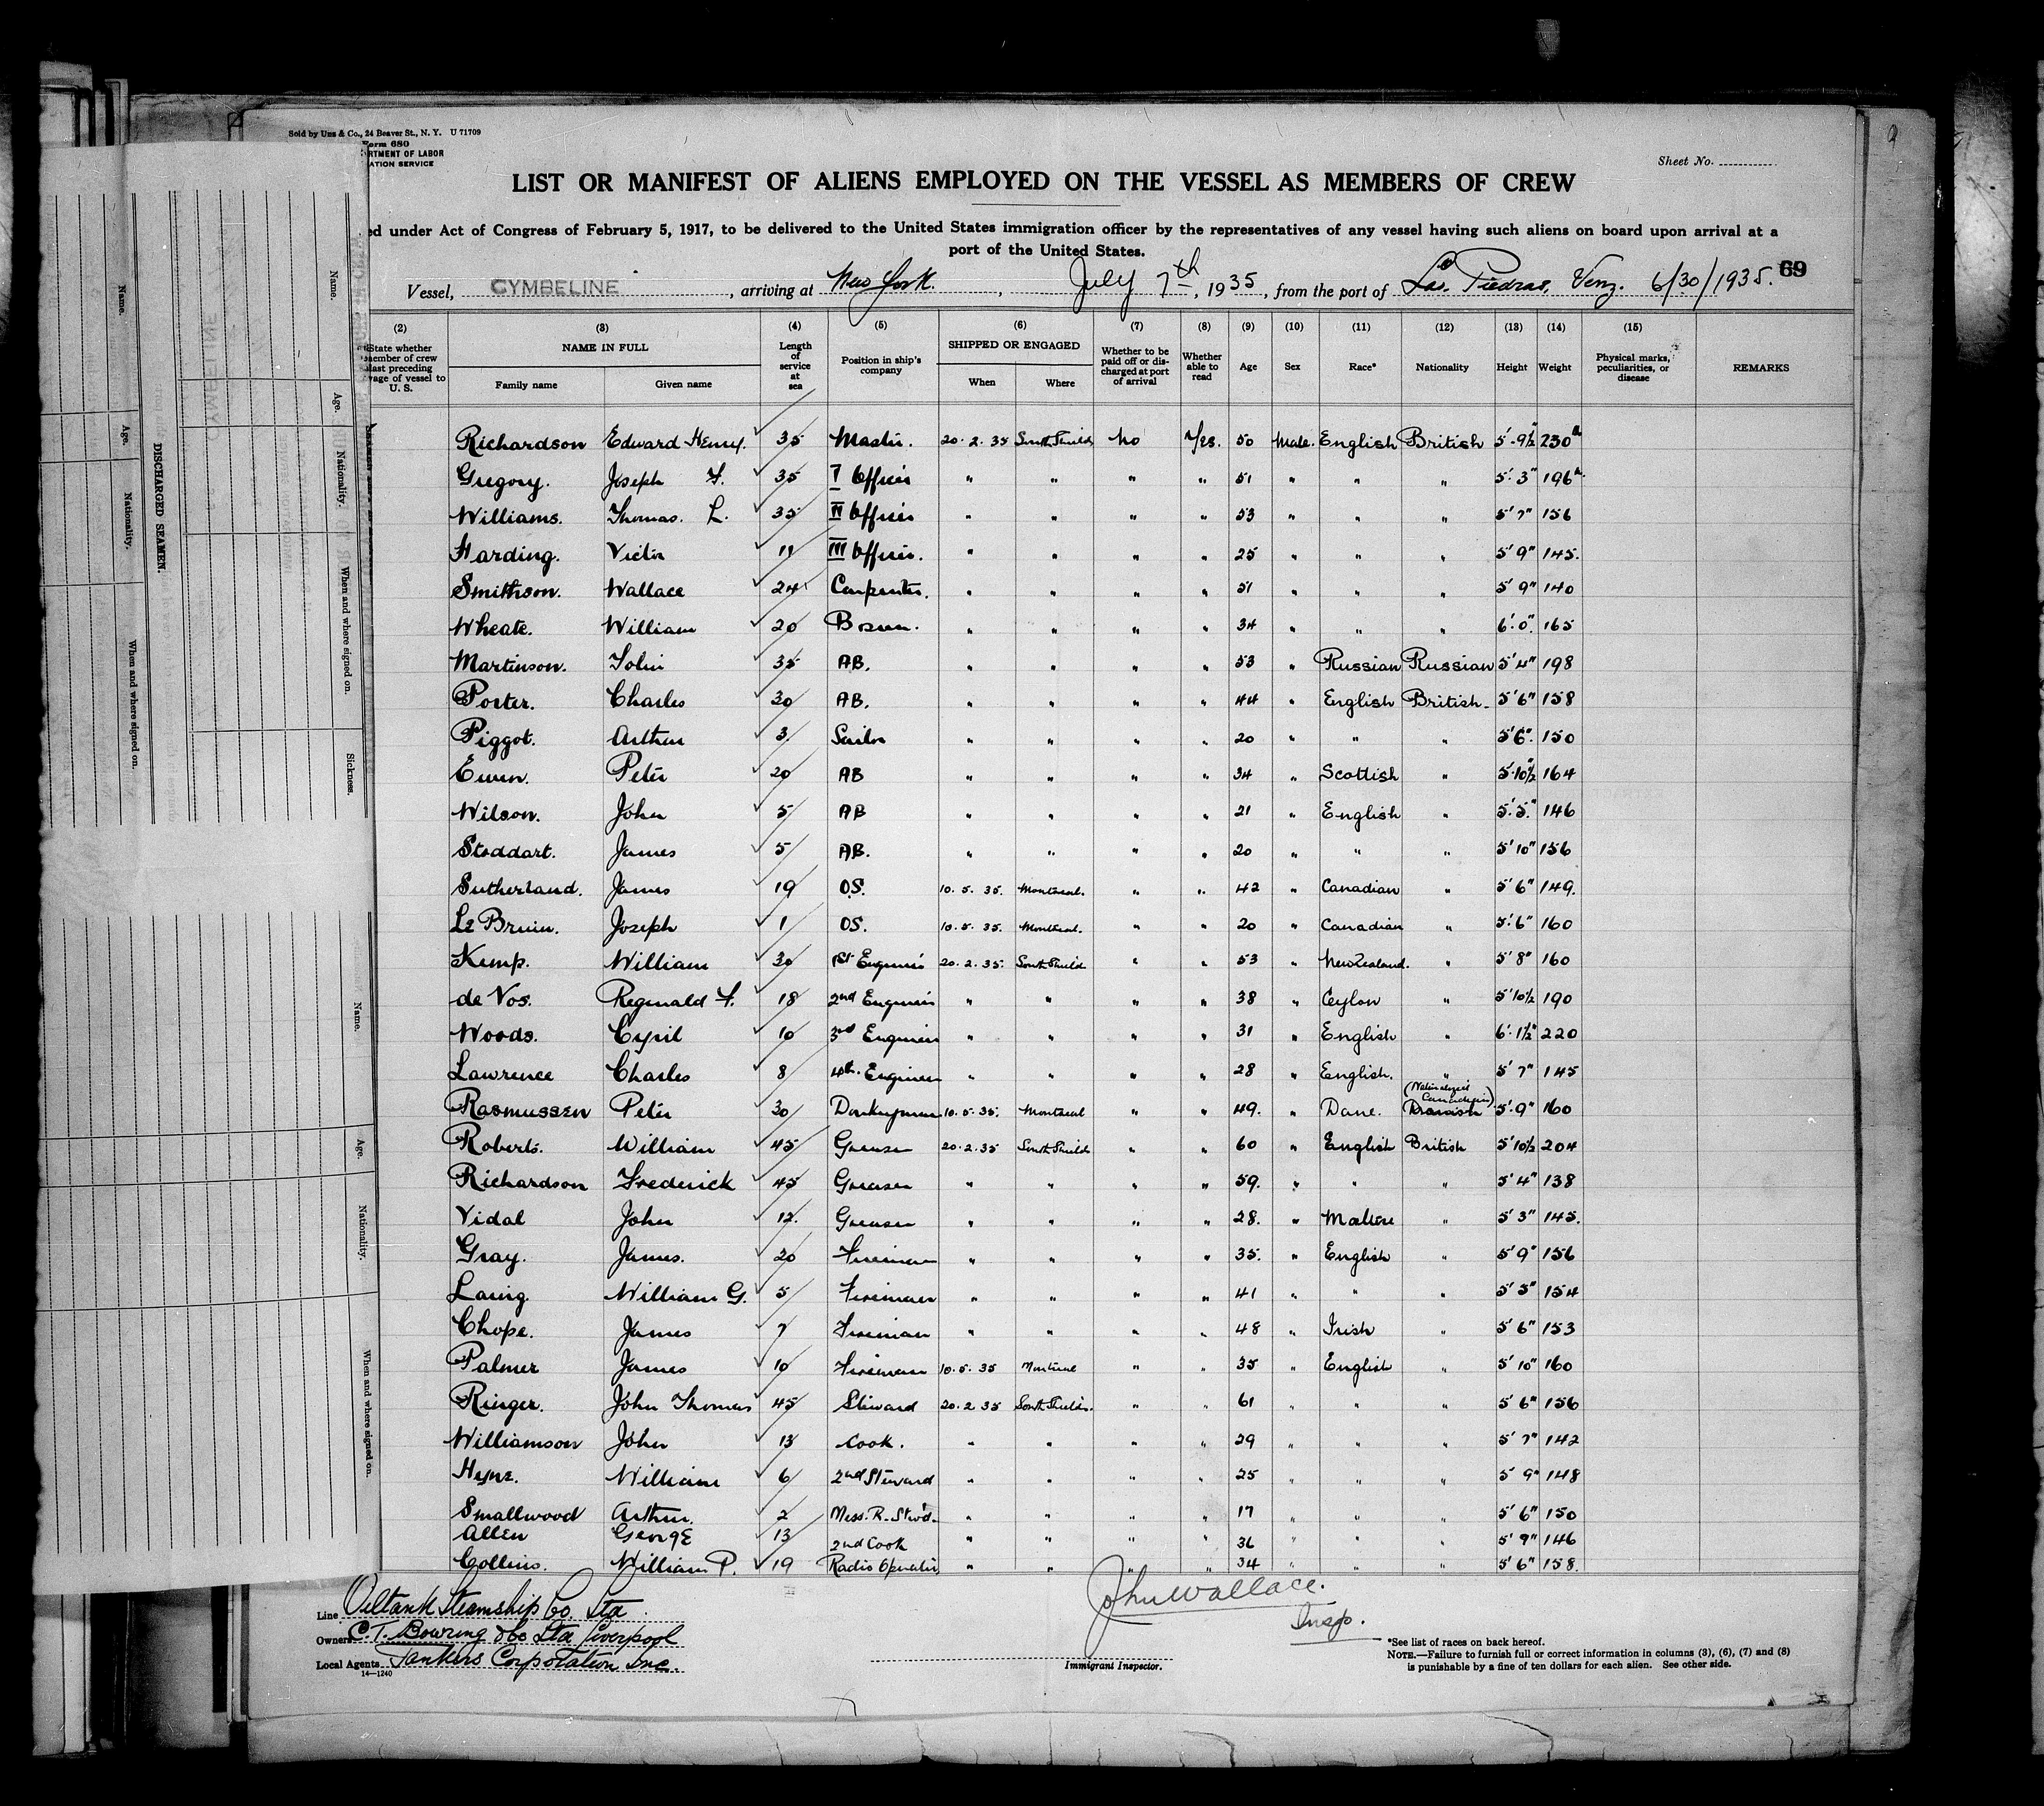 Sold by Unz & Co., 24 Beaver St., N. Y. U 71709
Form 680
RTMENT OF LABOR
ATION SERVICE
Sheet No.
LIST OR MANIFEST OF ALIENS EMPLOYED ON THE VESSEL AS MEMBERS OF CREW
ed under Act of Congress of February 5, 1917, to be delivered to the United States immigration officer by the representatives of any vessel having such aliens on board upon arrival at a
port of the United States.
69
Vessel, CYMBELINE, arriving at New York, July 7th, 1935, from the port of Las Piedras, Venz. 6/30/1935.
(2) (3) (4) (5) (6) (7) (8) (9) (10) (11) (12) (13) (14) (15)
State whether member of crew last preceding voyage of vessel to U. S. NAME IN FULL Family name Given name Length of service at sea Position in ship's company SHIPPED OR ENGAGED When Where Whether to be paid off or discharged at port of arrival Whether able to read Age Sex Race* Nationality Height Weight Physical marks, peculiarities, or disease REMARKS
Richardson Edward Henry. 35 Master. 20.2.35 South Shields No Yes. 50 Male. English British 5'-9½" 230
Gregory. Joseph F. 35 I Officer " " " " 51 " " " 5'3" 196
Williams. Thomas. L. 35 II Officer " " " " 53 " " " 5'7" 156
Harding. Victor 11 III Officer. " " " " 25 " " " 5'9" 145.
Smithson. Wallace 24 Carpenter. " " " " 51 " " " 5'9" 140
Wheate. William 20 Bosun. " " " " 34 " " " 6'0" 165
Martinson. John 35 AB. " " " " 53 " Russian Russian 5'4" 198
Porter. Charles 30 AB. " " " " 44 " English British 5'6" 158
Piggot. Arthur 3 Sailor " " " " 20 " " " 5'6" 150
Ewen. Peter 20 AB " " " " 34 " Scottish " 5'10½ 164
Wilson. John 5 AB " " " " 21 " English " 5'5" 146
Stoddart. James 5 AB. " " " " 20 " " " 5'10" 156
Sutherland. James 19 OS. 10.5.35. Montreal. " " 42 " Canadian " 5'6" 149.
Le Bruin. Joseph 1 OS. 10.5.35. Montreal. " " 20 " Canadian " 5'6" 160
Kemp. William 30 1st Engineer 20.2.35. South Shield " " 53 " New Zealand. " 5'8" 160
de Vos. Reginald F. 18 2nd Engineer " " " " 38 " Ceylon " 5'10½ 190
Woods. Cyril 10 3rd Engineer " " " " 31 " English " 6'1½" 220
Lawrence Charles 8 4th. Engineer " " " " 28 " English. " 5'7" 145
Rasmussen Peter 30 Donkeyman 10.5.35. Montreal " " 49. " Dane. (Naturalized Canadian) Danish 5'9" 160
Roberts. William 45 Greaser 20.2.35 South Shields " " 60 " English British 5'10½ 204
Richardson Frederick 45 Greaser " " " " 59. " " " 5'4" 138
Vidal John 12. Greaser " " " " 28. " Maltese " 5'3" 145.
Gray. James. 20 Fireman " " " " 35. " English " 5'9" 156
Laing William G. 5 Fireman " " " " 41 " " " 5'5" 154
Chope. James 7 Fireman " " " " 48 " Irish " 5'6" 153
Palmer James 10 Fireman 10.5.35 Montreal " " 35 " English " 5'10" 160
Ringer. John Thomas 45 Steward 20.2.35 South Shields. " " 61 " " " 5'6" 156
Williamson John 13 Cook. " " " " 29 " " " 5'7" 142
William 6 2nd Steward " " " " 25 " " " 5'9" 148
Smallwood Arthur. 2 Mess. R. Stwd. " " " " 17 " " " 5'6" 150
Allen George 13 2nd Cook " " " " 36 " " " 5'9" 146
Collins. William P. 19 Radio Operator " " " " 34 " " " 5'6" 158.
Line Oiltank Steamship Co. Ltd
Owners C.T. Bowring & Co Ltd Liverpool
Local Agents Tankers Corporation Inc.
14—1240
John Wallace.
Insp.
Immigrant Inspector.
*See list of races on back hereof.
NOTE.—Failure to furnish full or correct information in columns (3), (6), (7) and (8)
is punishable by a fine of ten dollars for each alien. See other side.
DISCHARGED SEAMEN.
Name.
Age.
Nationality.
When and where signed on.
Name.
Age.
Nationality.
When and where signed on.
Sickness.
Name.
Age.
Nationality.
When and where signed on.